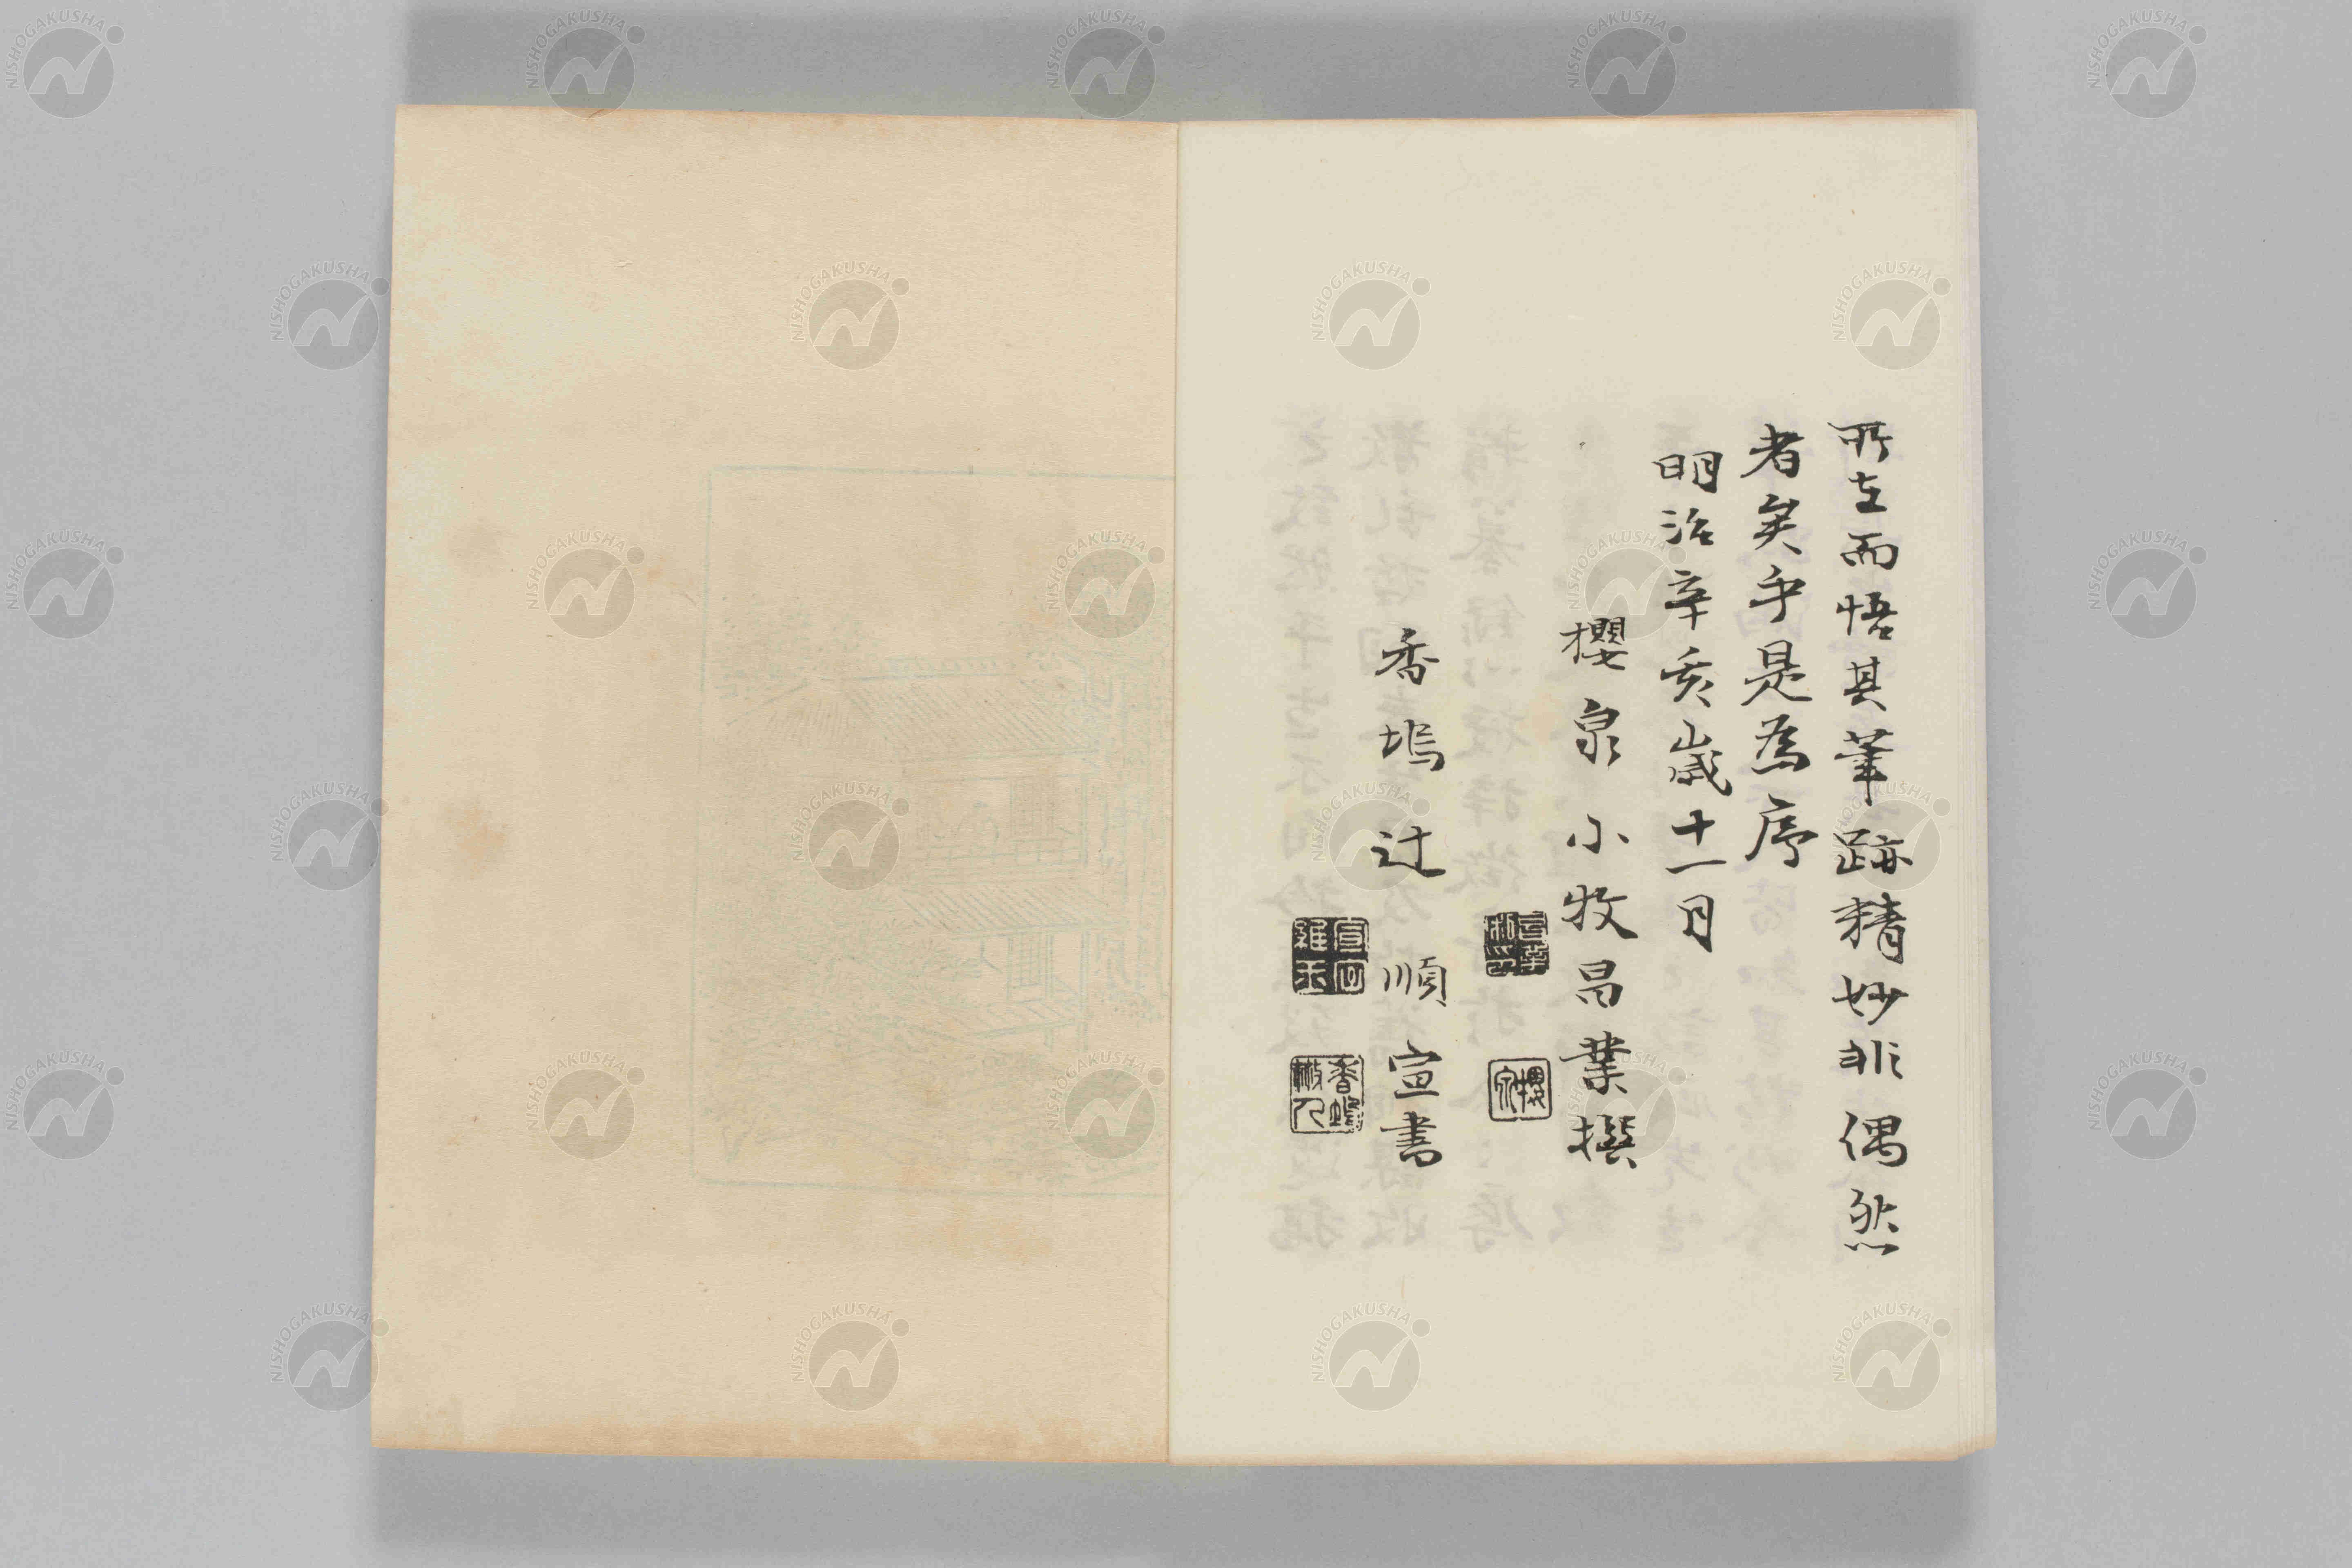 所在而悟其筆跡精妙非偶然
者矣乎是為序
明治辛亥歲十一月
櫻泉小牧昌業撰
櫻泉
香塢辻順宣書
NISHOGAKUSHA